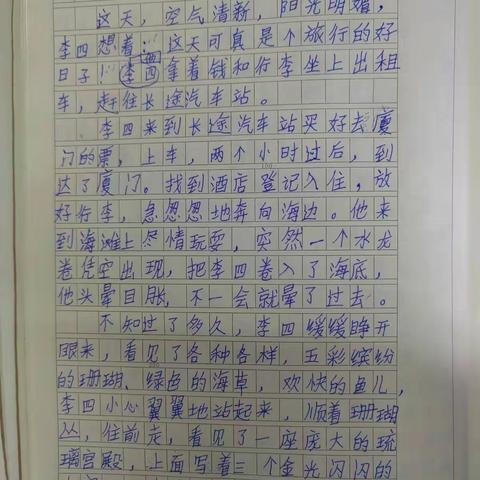 这天，空气清新，阳光明媚，
李四想着：这天可真是个旅行的好
日子！李四拿着钱和行李坐上出租
车，赶往长途汽车站。
李四来到长途汽车站买好去厦
门的票，上车，两个小时过后，到
达了厦门。找到酒店登记入住，放
好行李，急忽忽地奔向海边。他来
到海滩上尽情玩耍，突然一个水龙
卷凭空出现，把李四卷入了海底，
他头晕目胀，不一会就晕了过去。
不知过了多久，李四缓缓睁开
眼来，看见了各种各样，五彩缤纷
的珊瑚、绿色的海草，欢快的鱼儿，
李四小心翼翼地站起来，顺着珊瑚
丛，往前走，看见了一座庞大的琉
璃宫殿，上面写着三个金光闪闪的